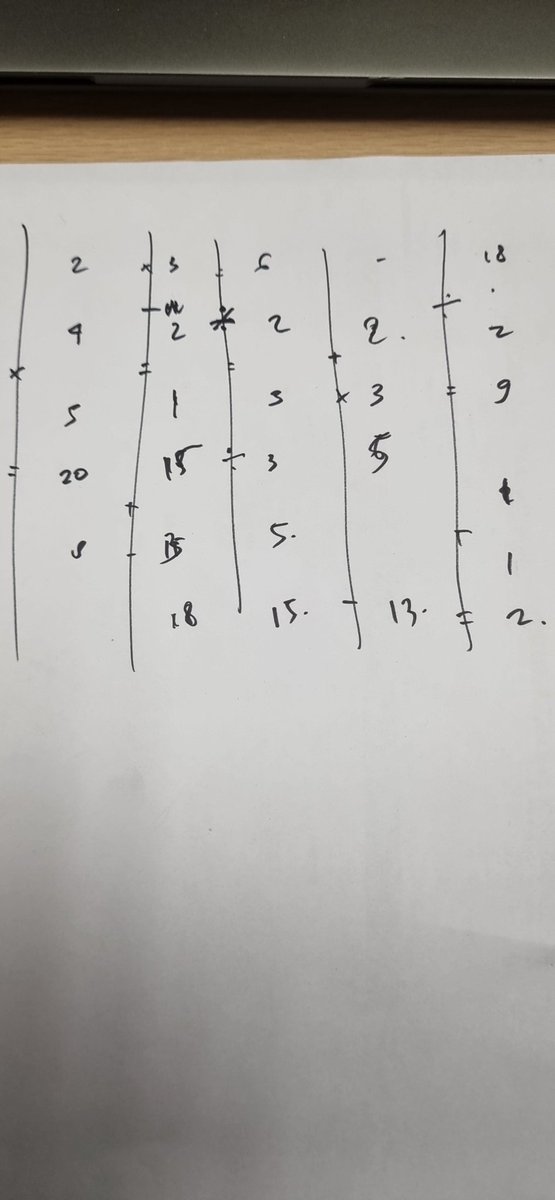 2 × 3 = 6 - 18
4 ÷ 2 * 2 2. ÷ 2
× 5 = 1 = 3 + × 3 = 9
= 20 15 ÷ 3 5
5 + 5. + 1
- 18 15. - 13. = 2.